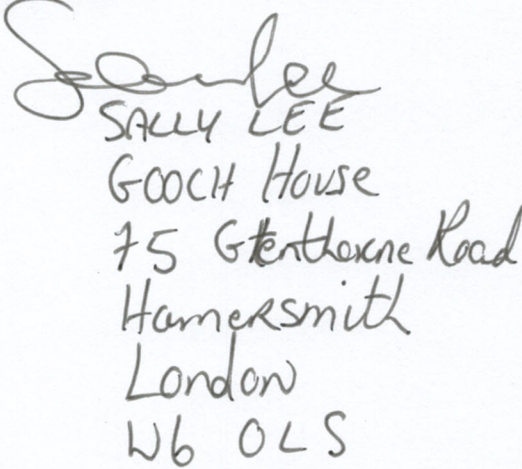 Sally Lee
SALLY LEE
GOOCH House
75 Glenthorne Road
Hamersmith
London
W6 0LS